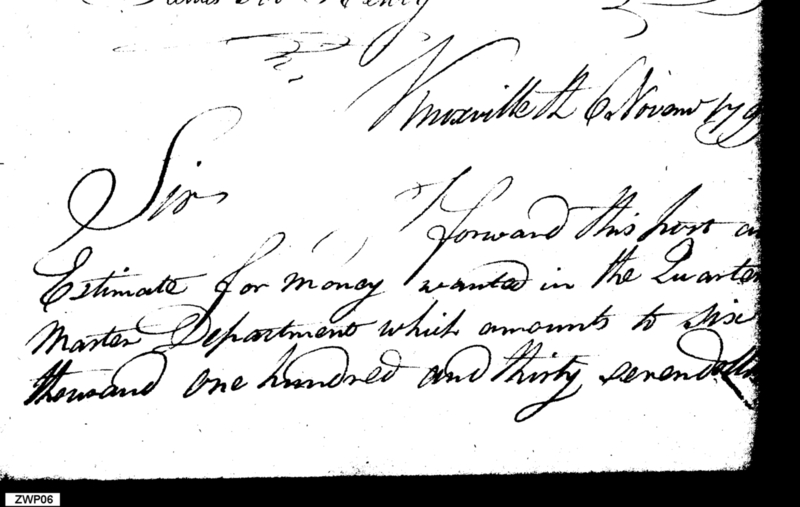 Henry
Knoxville th 6 Novemr 179
Sir
I forward this post an
Estimate for money wanted in the Quarter
Master Department which amounts to six
thousand one hundred and thirty seven dolla
ZWP06